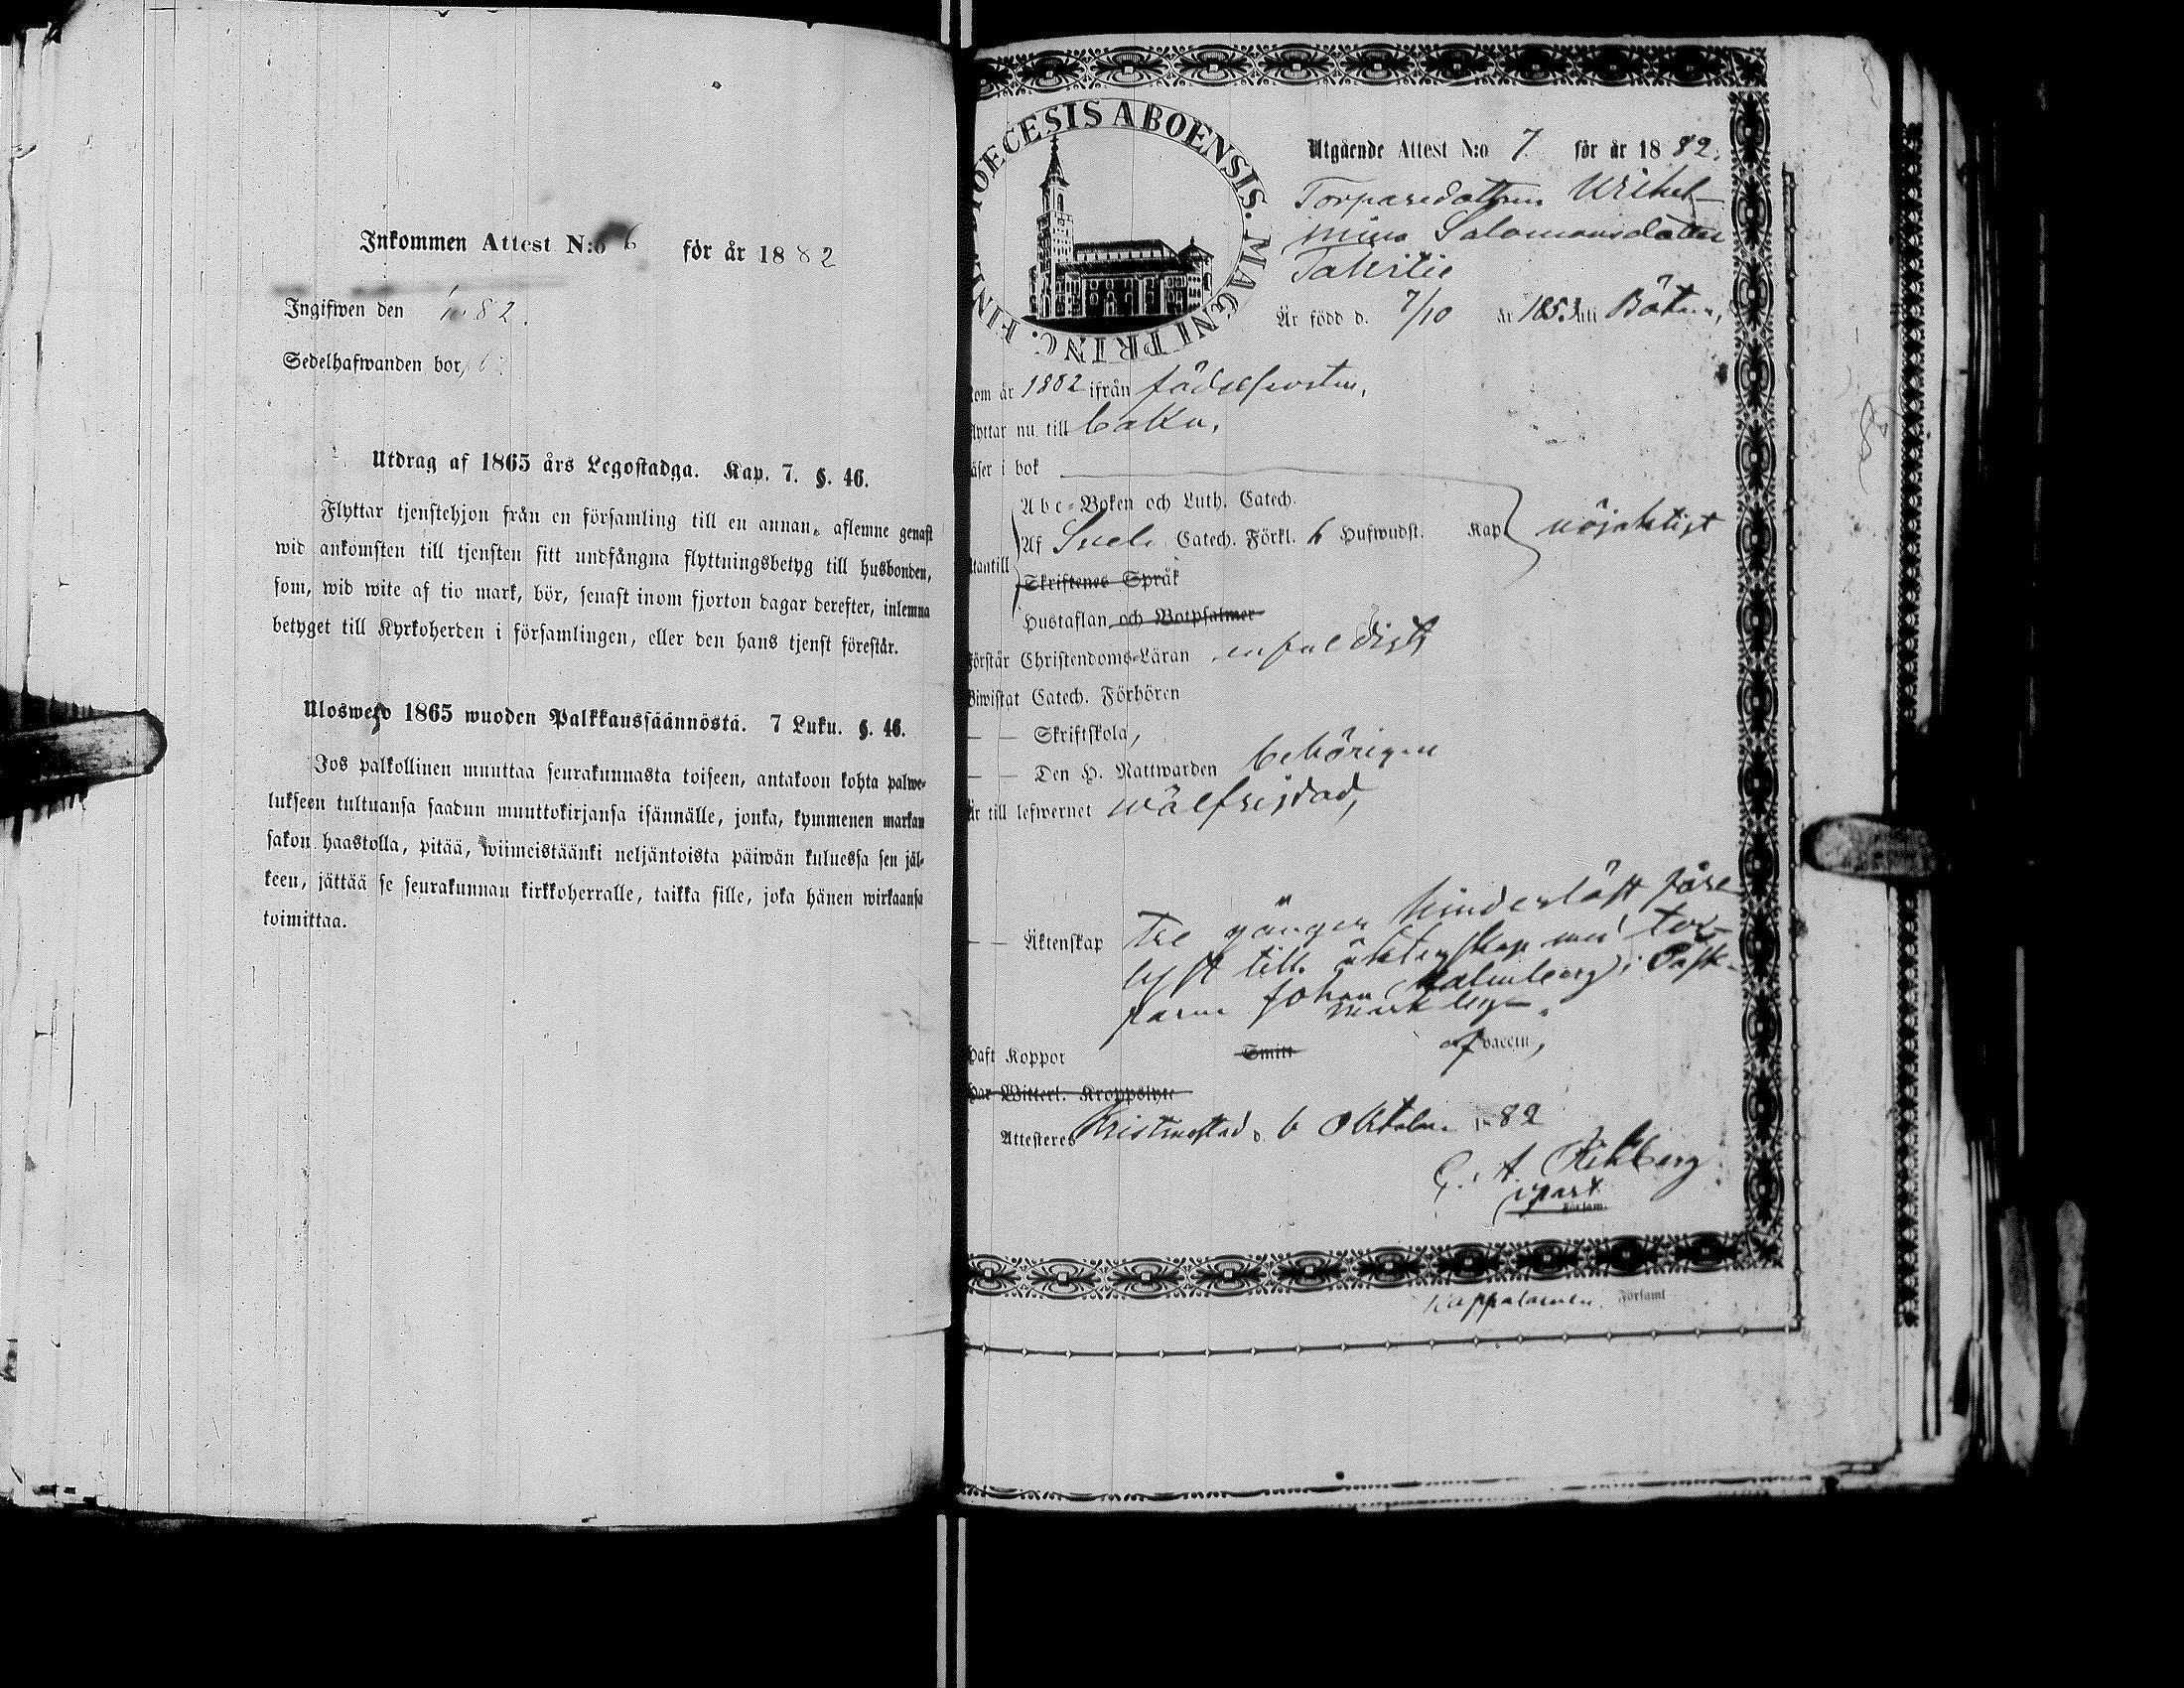 Inkommen Attest N:o 6 för år 1882
Ingifwen den 1882.
Sedelhafwanden bor,
Utdrag af 1865 års Legostadga. Kap. 7. §. 46.
Flyttar tjenstehjon från en församling till en annan, aflemne genast
wid ankomsten till tjensten sitt undfångna flyttningsbetyg till husbonden,
som, wid wite af tio mark, bör, senast inom fjorton dagar derefter, inlemna
betyget till Kyrkoherden i församlingen, eller den hans tjenst förestår.
Ulosweto 1865 wuoden Palkkaussäännöstä. 7 Luku. §. 46.
Jos palkollinen muuttaa seurakunnasta toiseen, antakoon kohta palwe-
lukseen tultuansa saadun muuttokirjansa isännälle, jonka, kymmenen markan
sakon haastolla, pitää, wiimeistäänki neljäntoista päiwän kuluessa sen jäl-
keen, jättää se seurakunnan kirkkoherralle, taikka sille, joka hänen wirkaansa
toimittaa.
DIOECESIS ABOENSIS. MAGNI PRINC. FINL.
Utgående Attest N:o 7 för år 1882.
Torparedottren Wilhel-
mina Salomonsdotter
Är född d. 7/10 år 1853 uti Bötom,
kom år 1882 ifrån födelseorten,
flyttar nu till
läser i bok
Abc-Boken och Luth. Catech.
Utantill Af Sveb. Catech. Förkl. 6 Hufwudst. Kap. nöjaktigt
Skriftenes Språk
Hustaflan och Botpsalmer
Förstår Christendoms-Läran enfaldigt
Biwistat Catech. Förhören
— — Skriftskola,
— — Den H. Nattwarden behörigen
Är till lefwernet wälfrejdad,
— — Äktenskap Tre gånger hinderlöst före
lyst till äktenskap med tor-
parn Johan Malmberg i Påsk-
mark by.
Haft Koppor Smitt af vaccin,
Har Witterl. Kroppslyte
Attesteres Kristinestad d. 6 Oktober 1882
past.
Församl.
Kappalainen. Församl